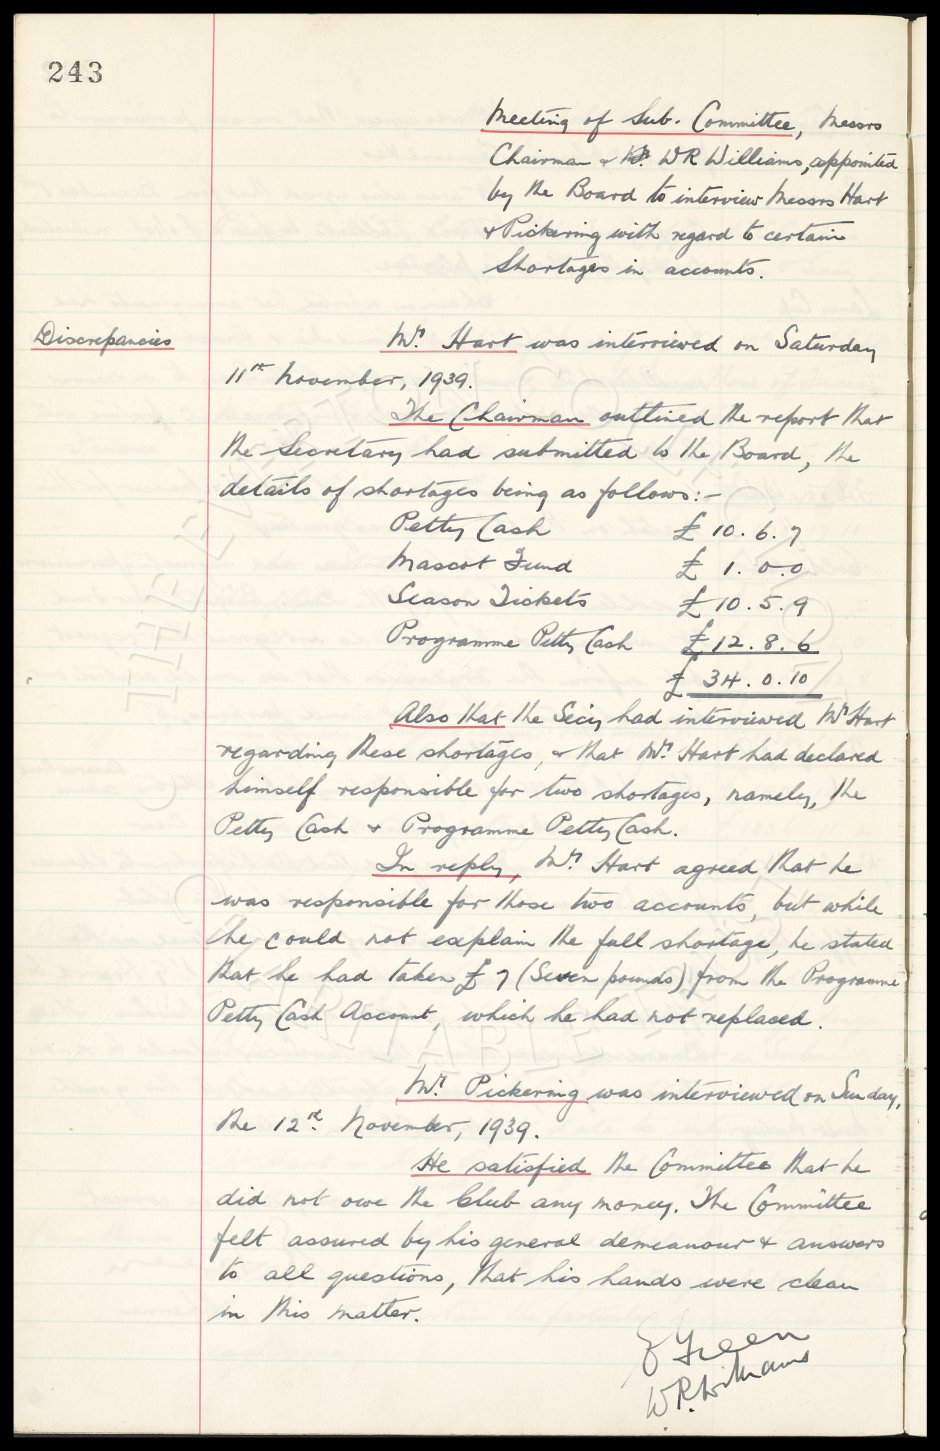 243
Meeting of Sub. Committee, Messrs
Chairman & W R Williams, appointed
by the Board to interview Messrs Hart
& Pickering with regard to certain
Shortages in accounts.
Discrepancies
Mr. Hart was interviewed on Saturday
11th November, 1939.
The Chairman outlined the report that
the Secretary had submitted to the Board, the
details of shortages being as follows:-
Petty Cash £ 10. 6. 7
Mascot Fund £ 1. 0. 0
Season Tickets £ 10. 5. 9
Programme Petty Cash £ 12. 8. 6
£ 34. 0. 10
Also that the Secy had interviewed Mr Hart
regarding these shortages, & that Mr. Hart had declared
himself responsible for two shortages, namely, the
Petty Cash & Programme Petty Cash.
In reply, Mr. Hart agreed that he
was responsible for those two accounts, but while
he could not explain the full shortage, he stated
that he had taken £ 7 (Seven pounds) from the Programme
Petty Cash Account, which he had not replaced.
Mr. Pickering was interviewed on Sunday,
the 12th. November, 1939.
He satisfied the Committee that he
did not owe the Club any money. The Committee
felt assured by his general demeanour & answers
to all questions, that his hands were clean
in this matter.
E Green
W.R. Williams